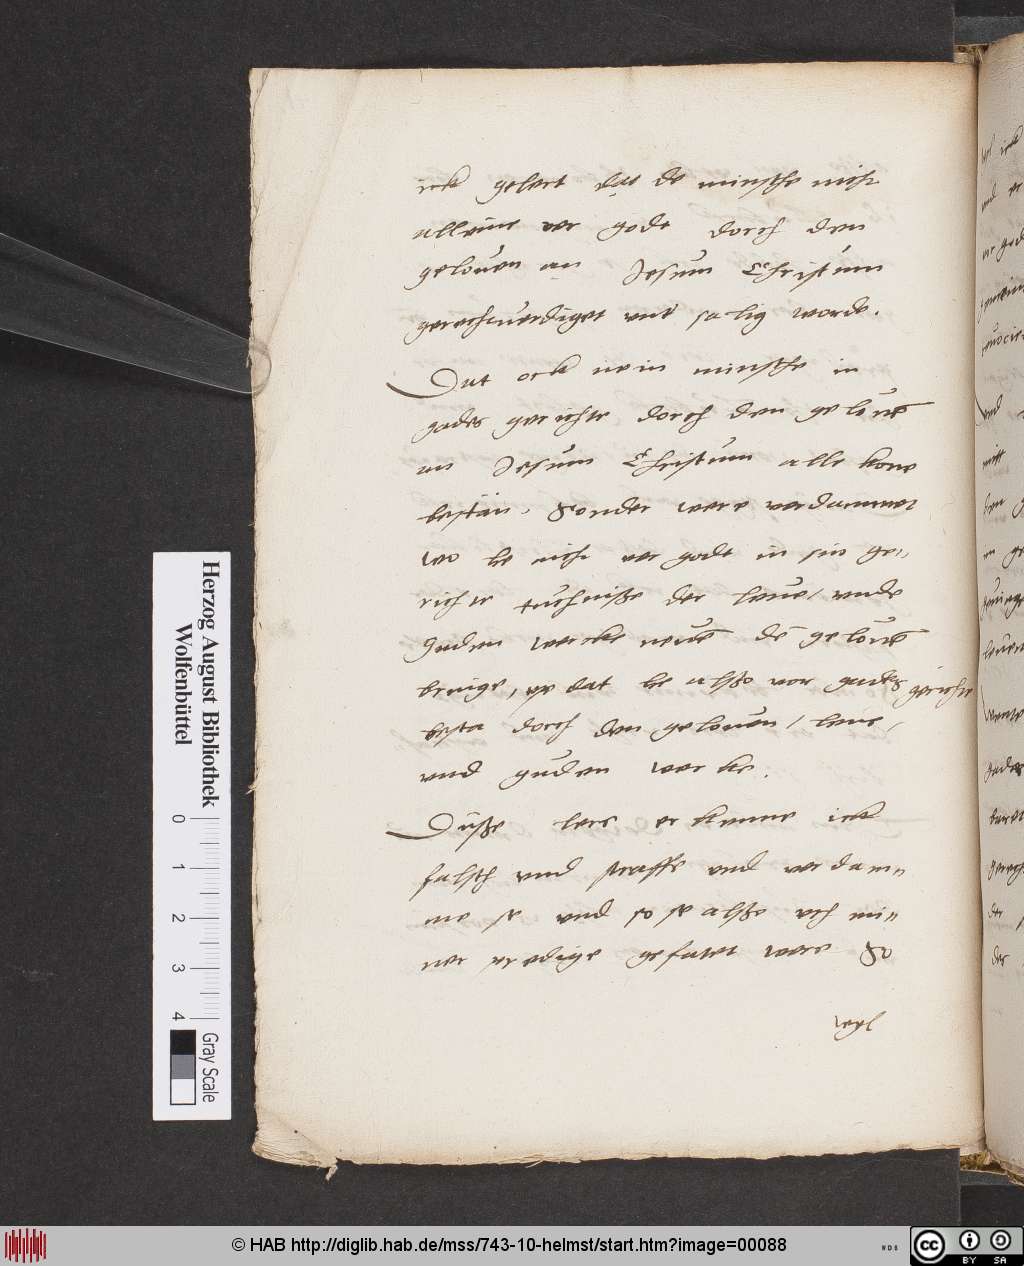 ick gelert dat de minsche nicht
alleine vor gode dorch den
gelouen an Jesum Christum
gerechtuerdiget unt salig worde.
Dat ock nein minsche in
gades gerichte dorch den gelouē
an Jesum Christum alle kone
bestān. Sonder were verdammet
wo he nicht vor gode in sin ge„
richte tuchniße der leue / unde
guden wercke neuē dē gelouē
bringe, up dat he alßo vor gades gerichte
besta dorch den gelouen / leue /
und guden wercke.
Duße lere erkenne ick
falsch und straffe und verdam„
me se und so se alßo uth mi„
ner predige gefatet were So
weyl
Herzog August Bibliothek
Wolfenbüttel
0 1 2 3 4
Gray Scale
© HAB http://diglib.hab.de/mss/743-10-helmst/start.htm?image=00088
cc BY SA